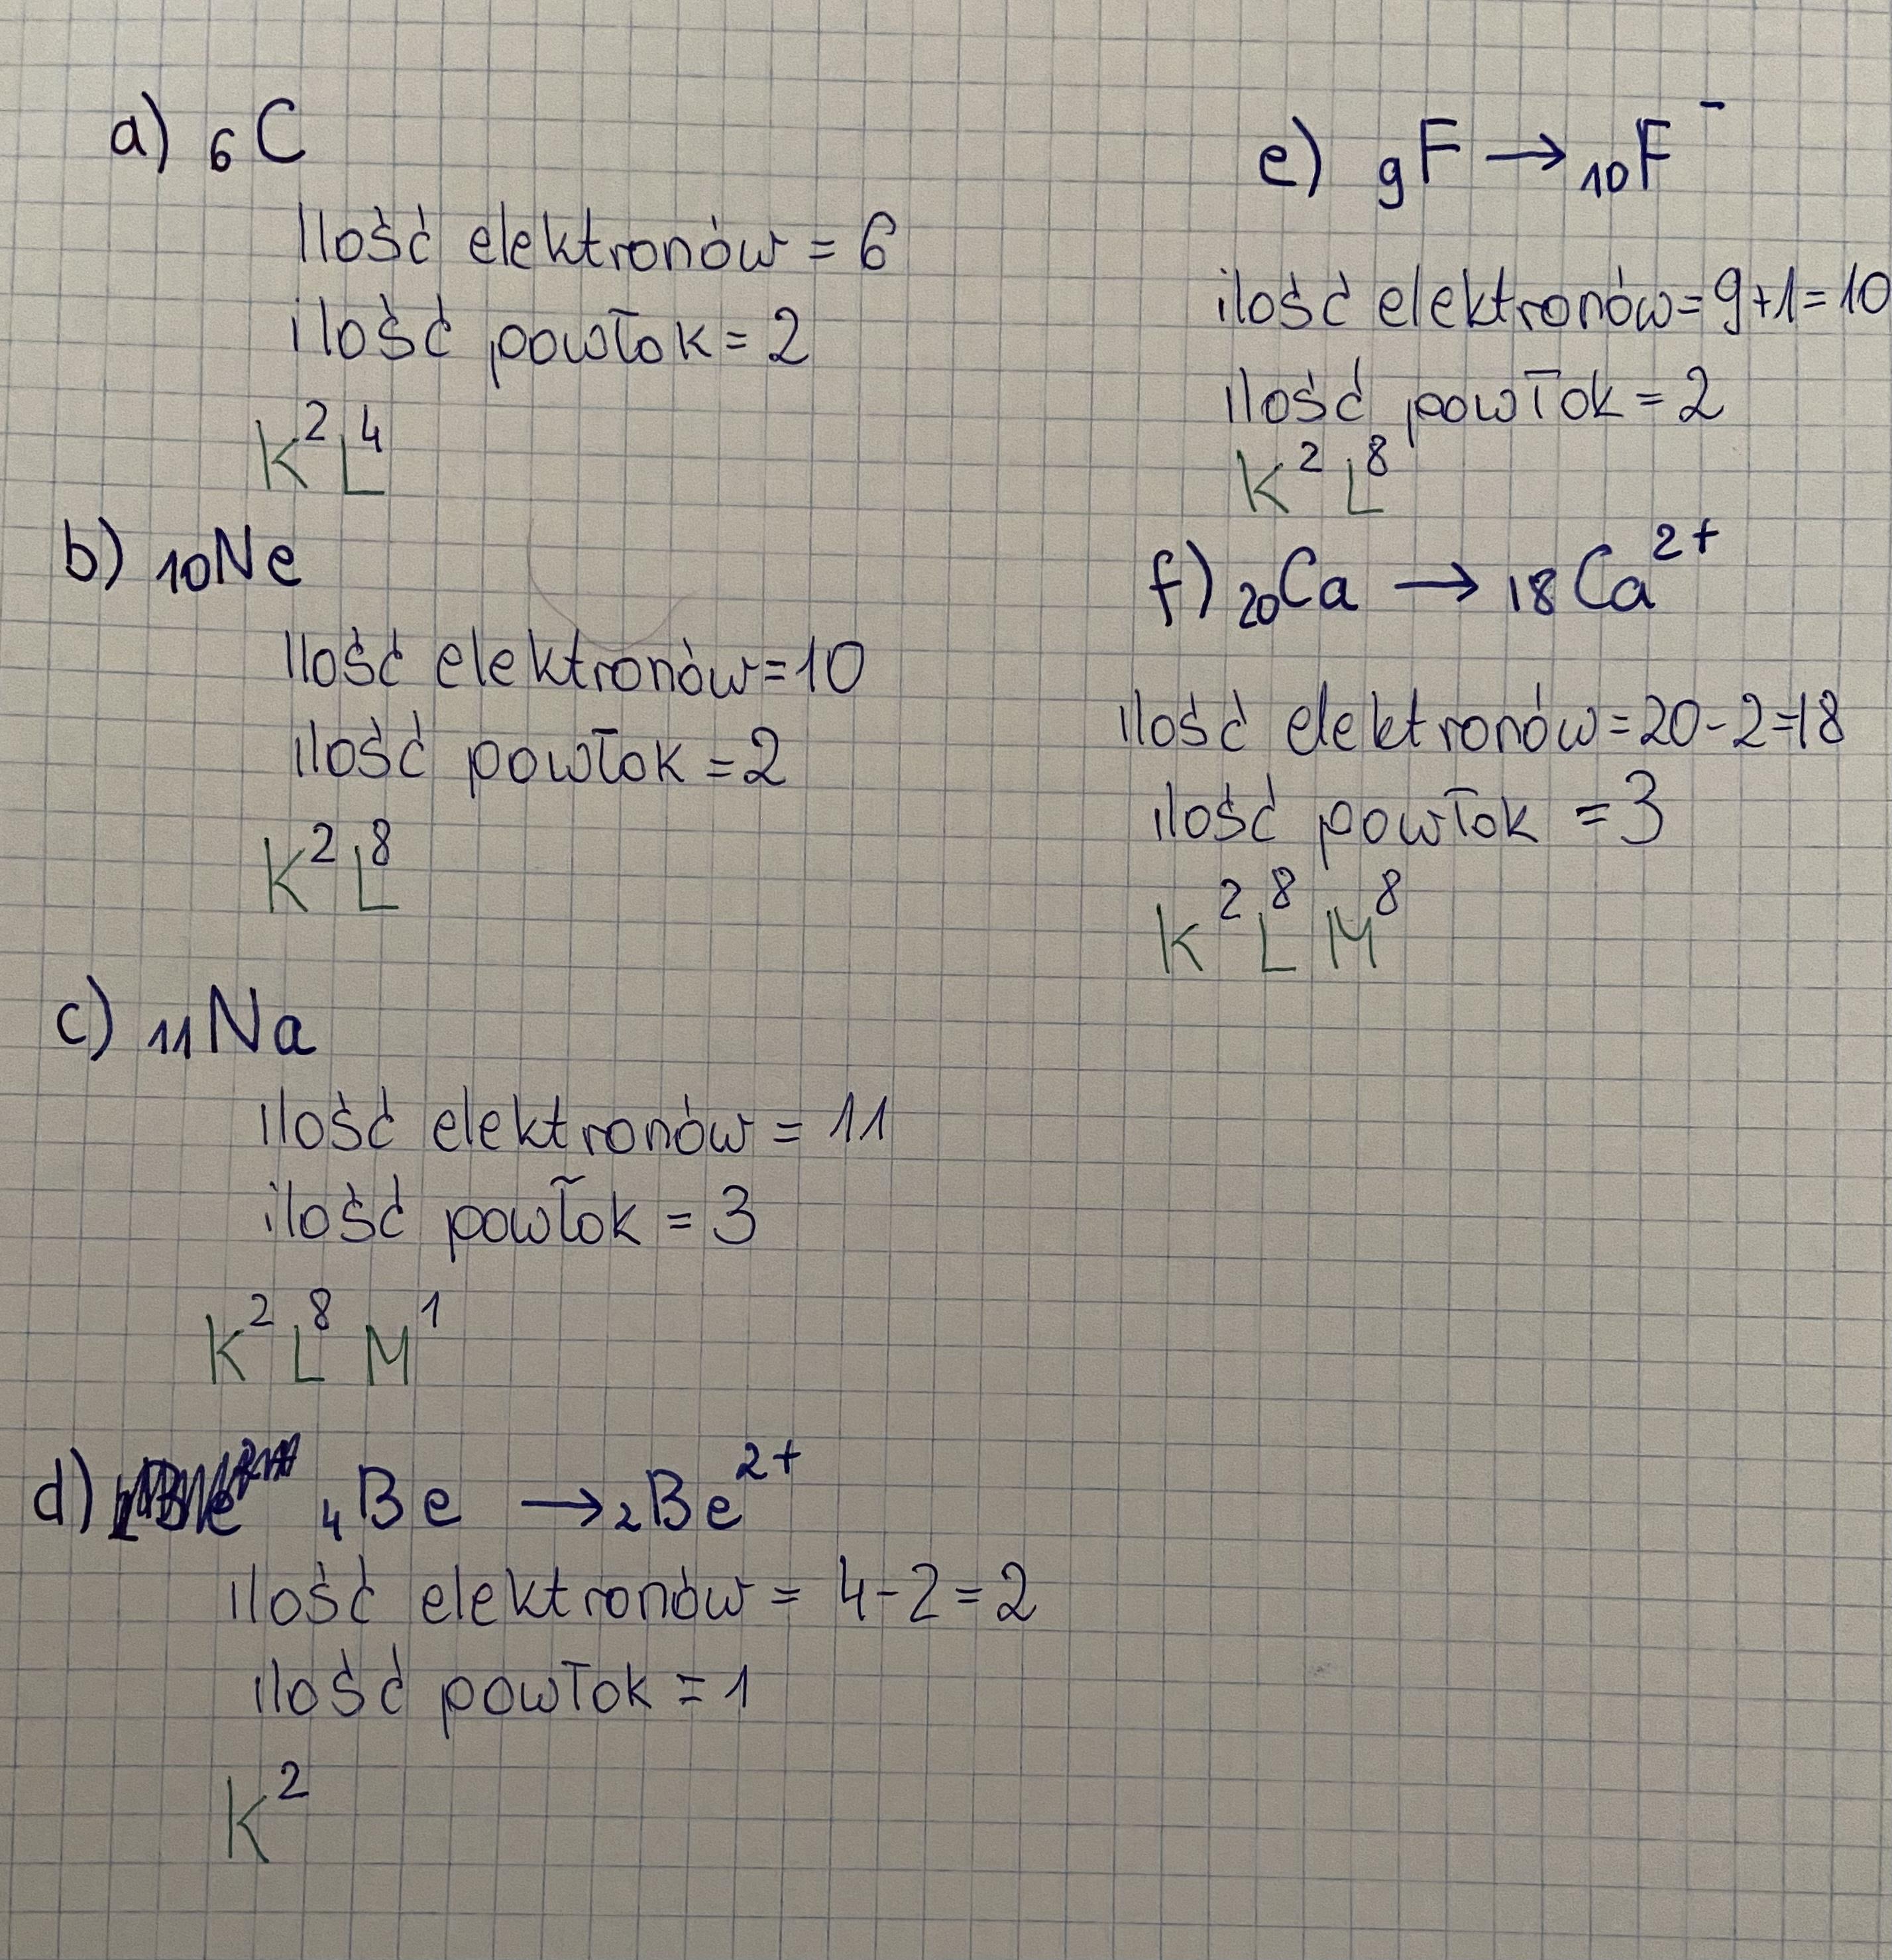 a) ₆C
Ilość elektronów = 6
ilość powłok = 2
K² L⁴
b) ₁₀Ne
Ilość elektronów = 10
ilość powłok = 2
K² L⁸
c) ₁₁Na
ilość elektronów = 11
ilość powłok = 3
K² L⁸ M¹
d) ₄Be → ₂Be²⁺
ilość elektronów = 4-2=2
ilość powłok = 1
K²
e) ₉F → ₁₀F⁻
ilość elektronów = 9+1=10
ilość powłok = 2
K² L⁸
f) ₂₀Ca → ₁₈Ca²⁺
ilość elektronów = 20-2=18
ilość powłok = 3
K² L⁸ M⁸